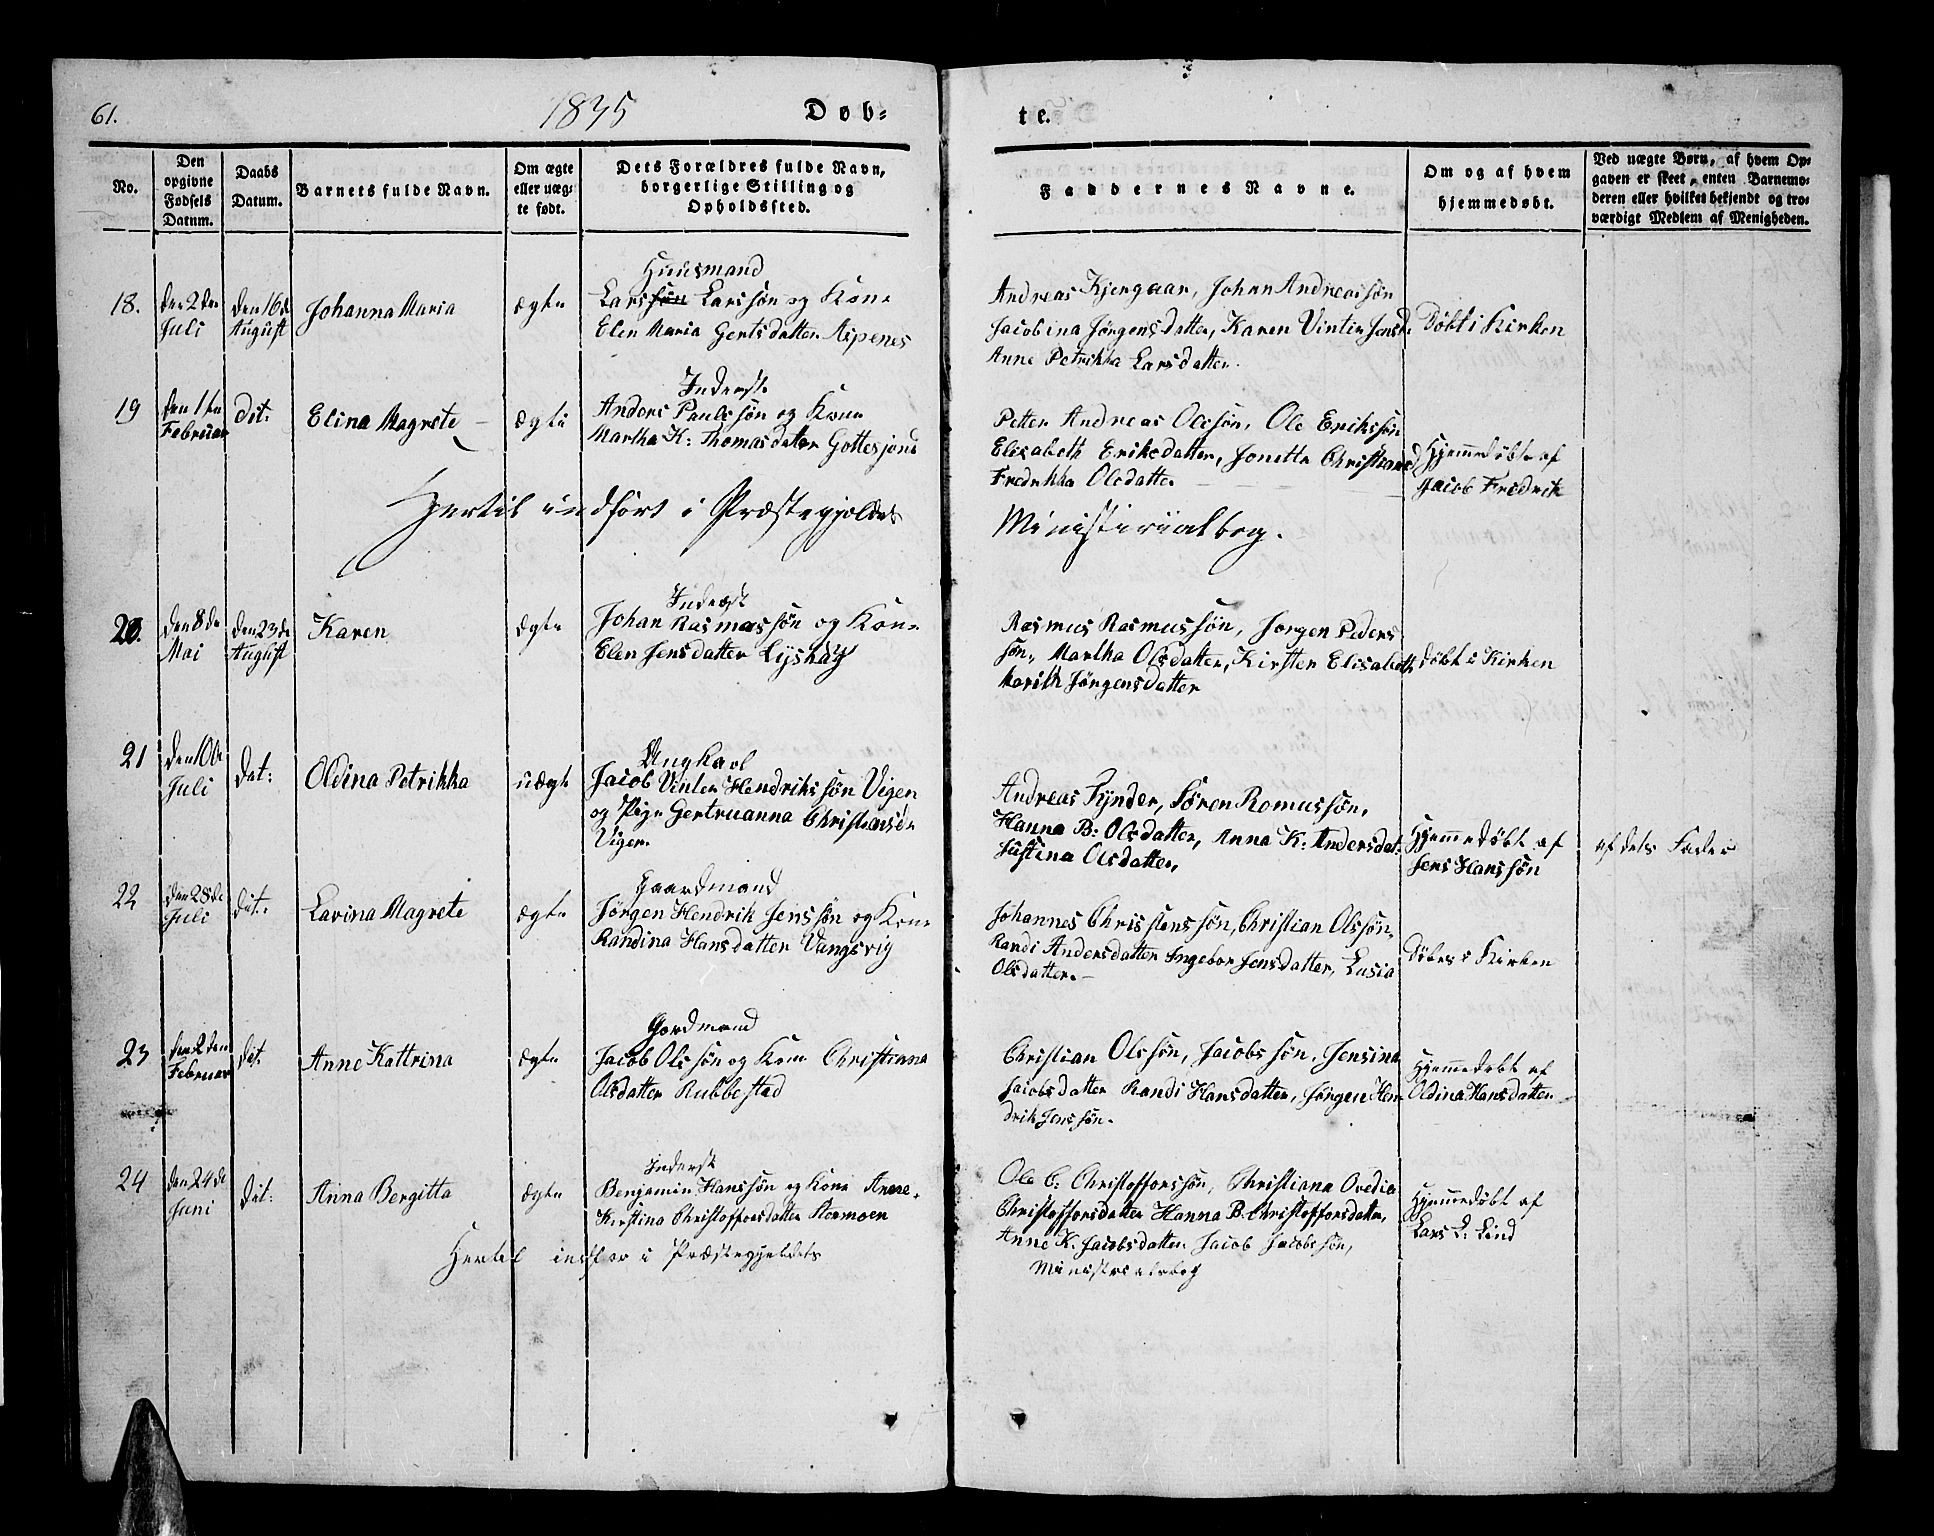 61.
1835
Døb-
te.
No.
Den
opgivne
Fødsels
Datum.
Daabs
Datum.
Barnets fulde Navn.
Om ægte
eller uæg-
te født.
Dets Forældres fulde Navn,
borgerlige Stilling og
Opholdssted.
Faddernes Navne.
Om og af hvem
hjemmedøbt.
Ved uægte Børn, af hvem Op-
gaven er skeet, enten Barnemo-
deren eller hvilket bekjendt og tro-
værdigt Medlem af Menigheden.
18.
den 2den
Juli
den 16de
August
Johanna Maria
ægte
Huusmand
Larssøn Larssøn og Kone
Elen Maria Gertsdatter Aspenes
Andreas Kjergaar, Johan Andreassøn
Jacobina Jørgensdatter, Karen Vinter Jensd.
Anne Petrikka Larsdatter.
Døbt i Kirken
19
den 1te
Februar
dit:
Elina Magrete
ægte
Inderst
Anders Paulssøn og Kone
Martha K: Thomasdatter Gottesjord
Petter Andreas Olesøn, Ole Erikssøn
Elisabeth Eriksdatter, Jonetta Christiansd
Fredrikka Olsdatter
Hjemmedøbt af
Jacob Fredrik
Hertil indført i Præstegjeldets
Ministerialbog.
20.
den 8de
Mai
den 23de
August
Karen
ægte
Inderst
Johan Rasmussøn og Kone
Elen Jensdatter Lyshaug
Rasmus Rasmussøn, Jørgen Peders
søn, Martha Olsdatter, Kirsten Elisabeth
Marith Jørgensdatter
Døbt i Kirken
21
den 10de
Juli
dat:
Oldina Petrikka
uægte
Ungkarl
Jacob Vinter Hendrikssøn Vigen
og Pige Gertruanna Christiansdr
Vigen.
Andreas Tynder, Søren Romussøn,
Hanna B: Olsdatter, Anna K. Andersdat.
Justina Olsdatter,
Hjemmedøbt af
Jens Hanssøn
af dets Fader
22
den 28de
Juli
dit:
Lavina Magrete
ægte
Gaardmand
Jørgen Hendrik Jenssøn og Kone
Randina Hansdatter Vangsvig
Johannes Christenssøn, Christian Olssøn,
Randi Andersdatter Ingebor Jensdatter, Lusia
Olsdatter.
Døbes i Kirken
23
den 2den
Februar
dit.
Anne Kattrina
ægte
Gordmand
Jacob Olssøn og Kone Christianna
Olsdatter Rubbestad
Christian Olssøn, Jacobssøn, Jensina
Jacobsdatter Randi Hansdatter, Jørgen Hen
drik Jenssøn.
Hjemmedøbt af
Oldina Hansdatter
24
den 24de
Juni
dit:
Anna Bergitta
ægte
Inderst
Benjamin Hanssøn og Kone Anne
Kirstina Christoffersdatter Stormoen
Ole C. Christofferssøn, Christiana Ovedia
Christoffersdatter Hanna B. Christoffersdatter,
Anne K. Jacobsdatter Jacob Jacobssøn,
Hjemmedøbt af
Lars L: Lind
Hertil indført i Præstegjeldets
Ministerialbog